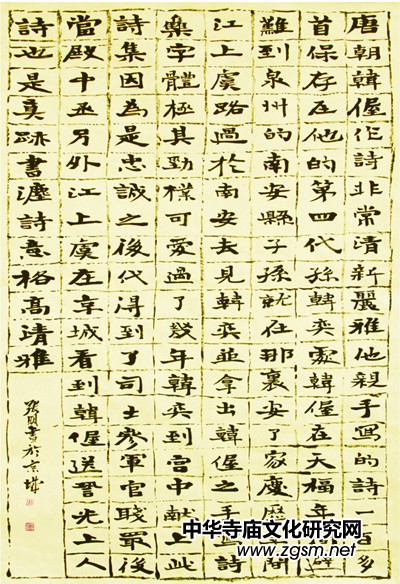 唐朝韓偓作詩非常清新麗雅他親手寫的詩一百多
首保存在他的第四代孫韓奕處韓偓在天福年間避
難到泉州的南安縣子孫就住那裏安了家慶歷年間
江上虞路過於南安去見韓奕並拿出韓偓之手詩
樂字體極其勁樣可愛過了數年韓奕到宮中獻上此
詩集因為是忠誠之後代得到了司士參軍官職最後
當殿中丞另外江上虞在京城看到韓偓送光上人
詩也是真跡書詩意格高清雅
書於京城
中华寺庙文化研究网
www.zgsm.net